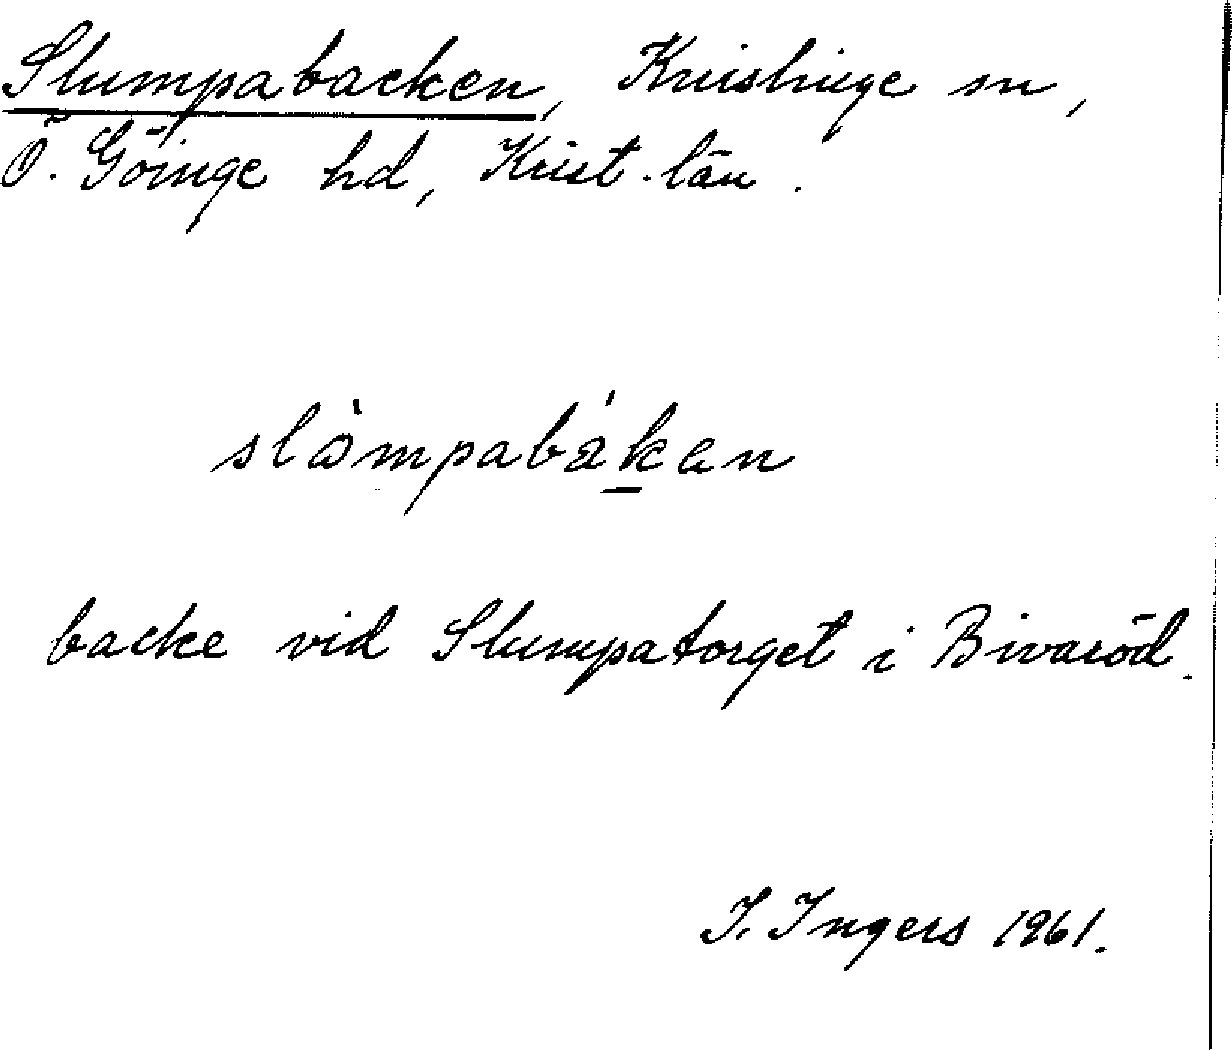 Slumpabacken, Knislinge sn,
Ö. Göinge hd, Krist. län.
slòmpabákan
backe vid Slumpatorget i Bivaröd.
I. Ingers 1961.